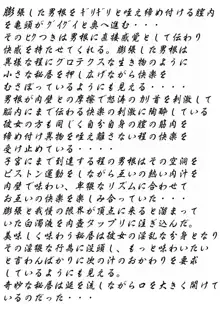 膨張した男根をギリギリと咥え締め付ける膣内
を亀頭がグイグイと奥へ進む・・・
そのヒクつきは男根に直接感覚として伝わり
快感を持たせてくれる。膨張した男根は
異様な程にグロテスクな生き物のように
小さな秘唇を押し広げながら快楽を
むさぼっているようにも見える。
男根が内壁との摩擦で怒涛の刺激して
脳内にまで伝わる快楽の刺激に陶酔している
彼女の方も同じく自分自身の膣の筋肉を
締め付け異物を咥え離さない程の快楽を
受け止めている・・・・
子宮にまで到達する程の男根はその空洞を
ピストン運動をしながら互いの熱い肉汁を
内壁で味わい、卑猥なリズムに合わせて
お互いの快楽を楽しみ合っていた・・・
膨張と我慢の限界が頂上に来ると溜まって
いた白濁液を肉壷タップリに注ぎ込んだ。
美味しく味わう秘唇は彼女の淫乱な分身となり
その淫猥な行為に没頭し、もっと味わいたい
と言わんばかりに次の汁のおかわりを要求
しているようにも見える。
奇妙な秘唇は涎を流しながら口を大きく開けて
いるのだった・・・